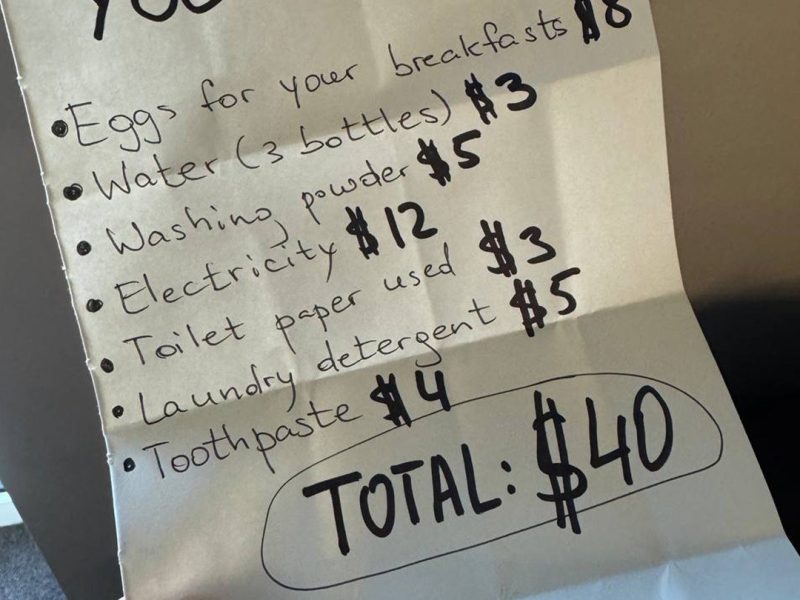 • Eggs for your breakfasts $8
• Water (3 bottles) $3
• Washing powder $5
• Electricity $12
• Toilet paper used $3
• Laundry detergent $5
• Toothpaste $4
TOTAL: $40